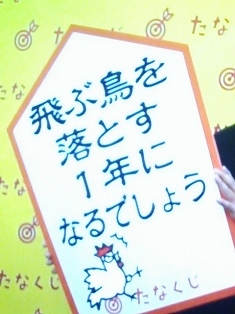 飛ぶ鳥を
落とす
1年に
なるでしょう
たなくじ
たなくじ